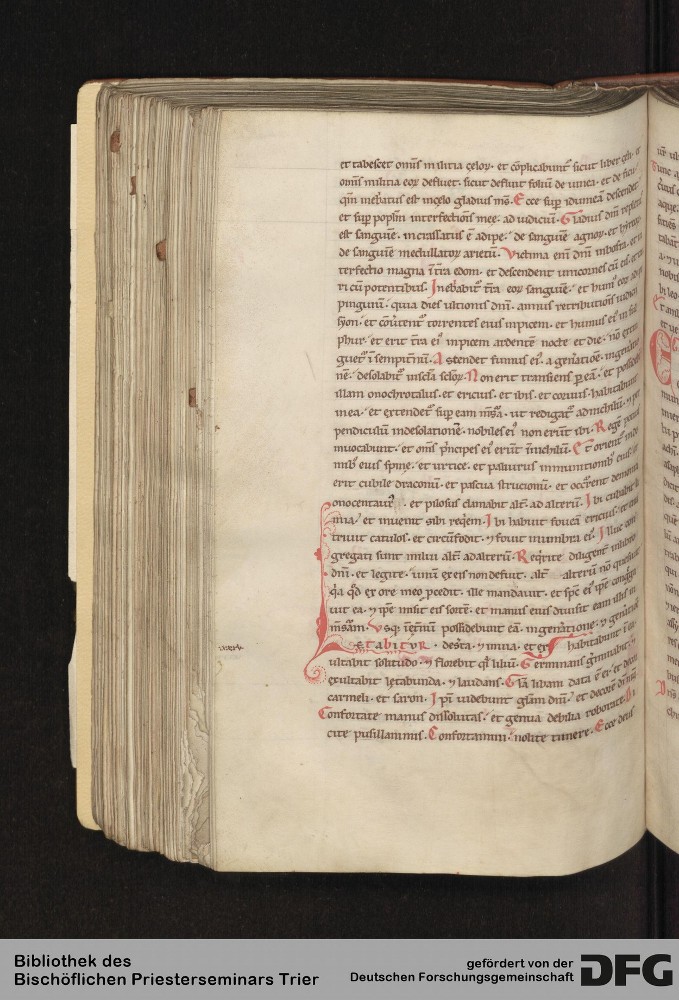 et tabescet om̄is militia çeloꝝ. et cōplicabunt᷑ sicut liber çeli. et
om̄is militia eoꝝ defluet. sicut defluit foliū de uinea. et de ficu.
qm̄ inebriatus est in çelo gladius m̄s. Ecce suꝑ idumeā descendet
et suꝑ popl̄m interfectionis meę. ad iudiciū. Gladius dn̄i repletus
est sanguine. incrassatus ē adipe. de sanguine agnoꝝ. et hyrcoꝝ.
de sanguine medullatoꝝ arietū. Victima eni dn̄i in bosra. et in
terfectio magna ī tr̄a edom. et descendent unicornes cū eis. et tau
ri cū potentibus. Inebriabit᷑ tr̄a eoꝝ sanguine. et humꝰ eoꝝ adipe
pinguiū. quia dies ultionis dn̄i. annus retributionis iudicii
syon. et cōuertent᷑ torrentes eius in picem. et humus eiꝰ in sul
phur. et erit tr̄a eiꝰ in picem ardentē nocte et die. nō extin
guet᷑ ī sempit̄nū. Ascendet fumus eiꝰ. a genꝰatiōe. in genꝰatio
nē. desolabit᷑ in sc̄la sc̄loꝝ. Non erit transiens ꝑ eā. et possidebunt
illam onochrotalus. et ericius. et ibis. et coruus. habitabunt
in ea. et extendet᷑ suꝑ eam mensura. ut redigat᷑ ad nichilū. ⁊ per
pendiculū in desolationē. nobiles eiꝰ non erūt ibi. Regē potius
inuocabunt. et om̄s prīncipes eiꝰ erūt ī nichilū. Et orient᷑ in do
mibꝰ eius spinę. et urticę. et paliurus in munitionibꝰ eius. et
erit cubile draconū. et pascua strucionū. et occr̄rent demonia
onocentaurꝰ. et pilosus clamabit alt̄. ad alterū. Ibi cubabit la
mia. et inuenit sibi req̄em. Ibi habuit foueā ericius. et enu
triuit catulos. et circūfodit. ⁊ fouit in umbra eiꝰ. Illuc con
gregati sunt milui alt̄ ad alterū. Reqrite diligent᷑ in libro
dn̄i. et legite. unū ex eis non defuit. alt̄ alterū nō quesiuit
qa qd ex ore meo ꝓcedit. ille mandauit. et spc̄ eiꝰ ipe congrega
uit ea. ⁊ ipe misit eis sortē. et manus eius diuisit eam illis in
m̄sura. Vsq; in et̄nū possidebunt eā. in generatione. ⁊ genꝰatiōe
Lętabitur. desr̄ta. ⁊ inuia. et ex habitabunt ī ea.
ultabit solitudo. ⁊ florebit qsi liliū. Germinans germinabit. ⁊
exultabit lętabunda. ⁊ laudans. Gl̄a libani data ē ei. et decor
carmeli. et saron. Ipi uidebunt gl̄am dn̄i. et decorē dī nr̄i.
Confortate manus dissolutas. et genua debilia roborate. Di
cite pusillanimis. Confortamini. nolite timere. Ecce deus
Bibliothek des
Bischöflichen Priesterseminars Trier
gefördert von der
Deutschen Forschungsgemeinschaft
DFG